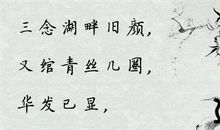 三念湖畔旧颜，
又绾青丝几圈，
华发已显，